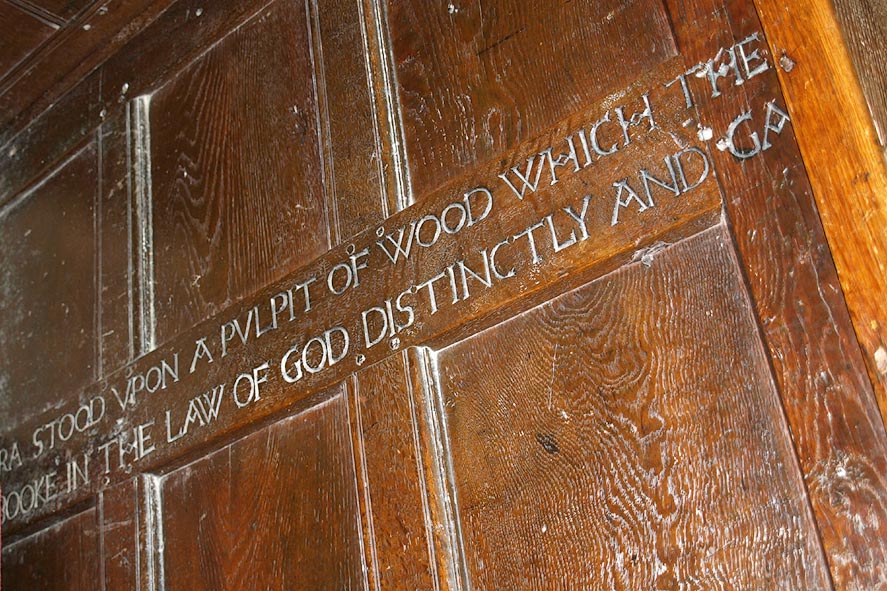 RA STOOD VPON A PVLPIT OF WOOD WHICH THE
BOOKE IN THE LAW OF GOD DISTINCTLY AND GA